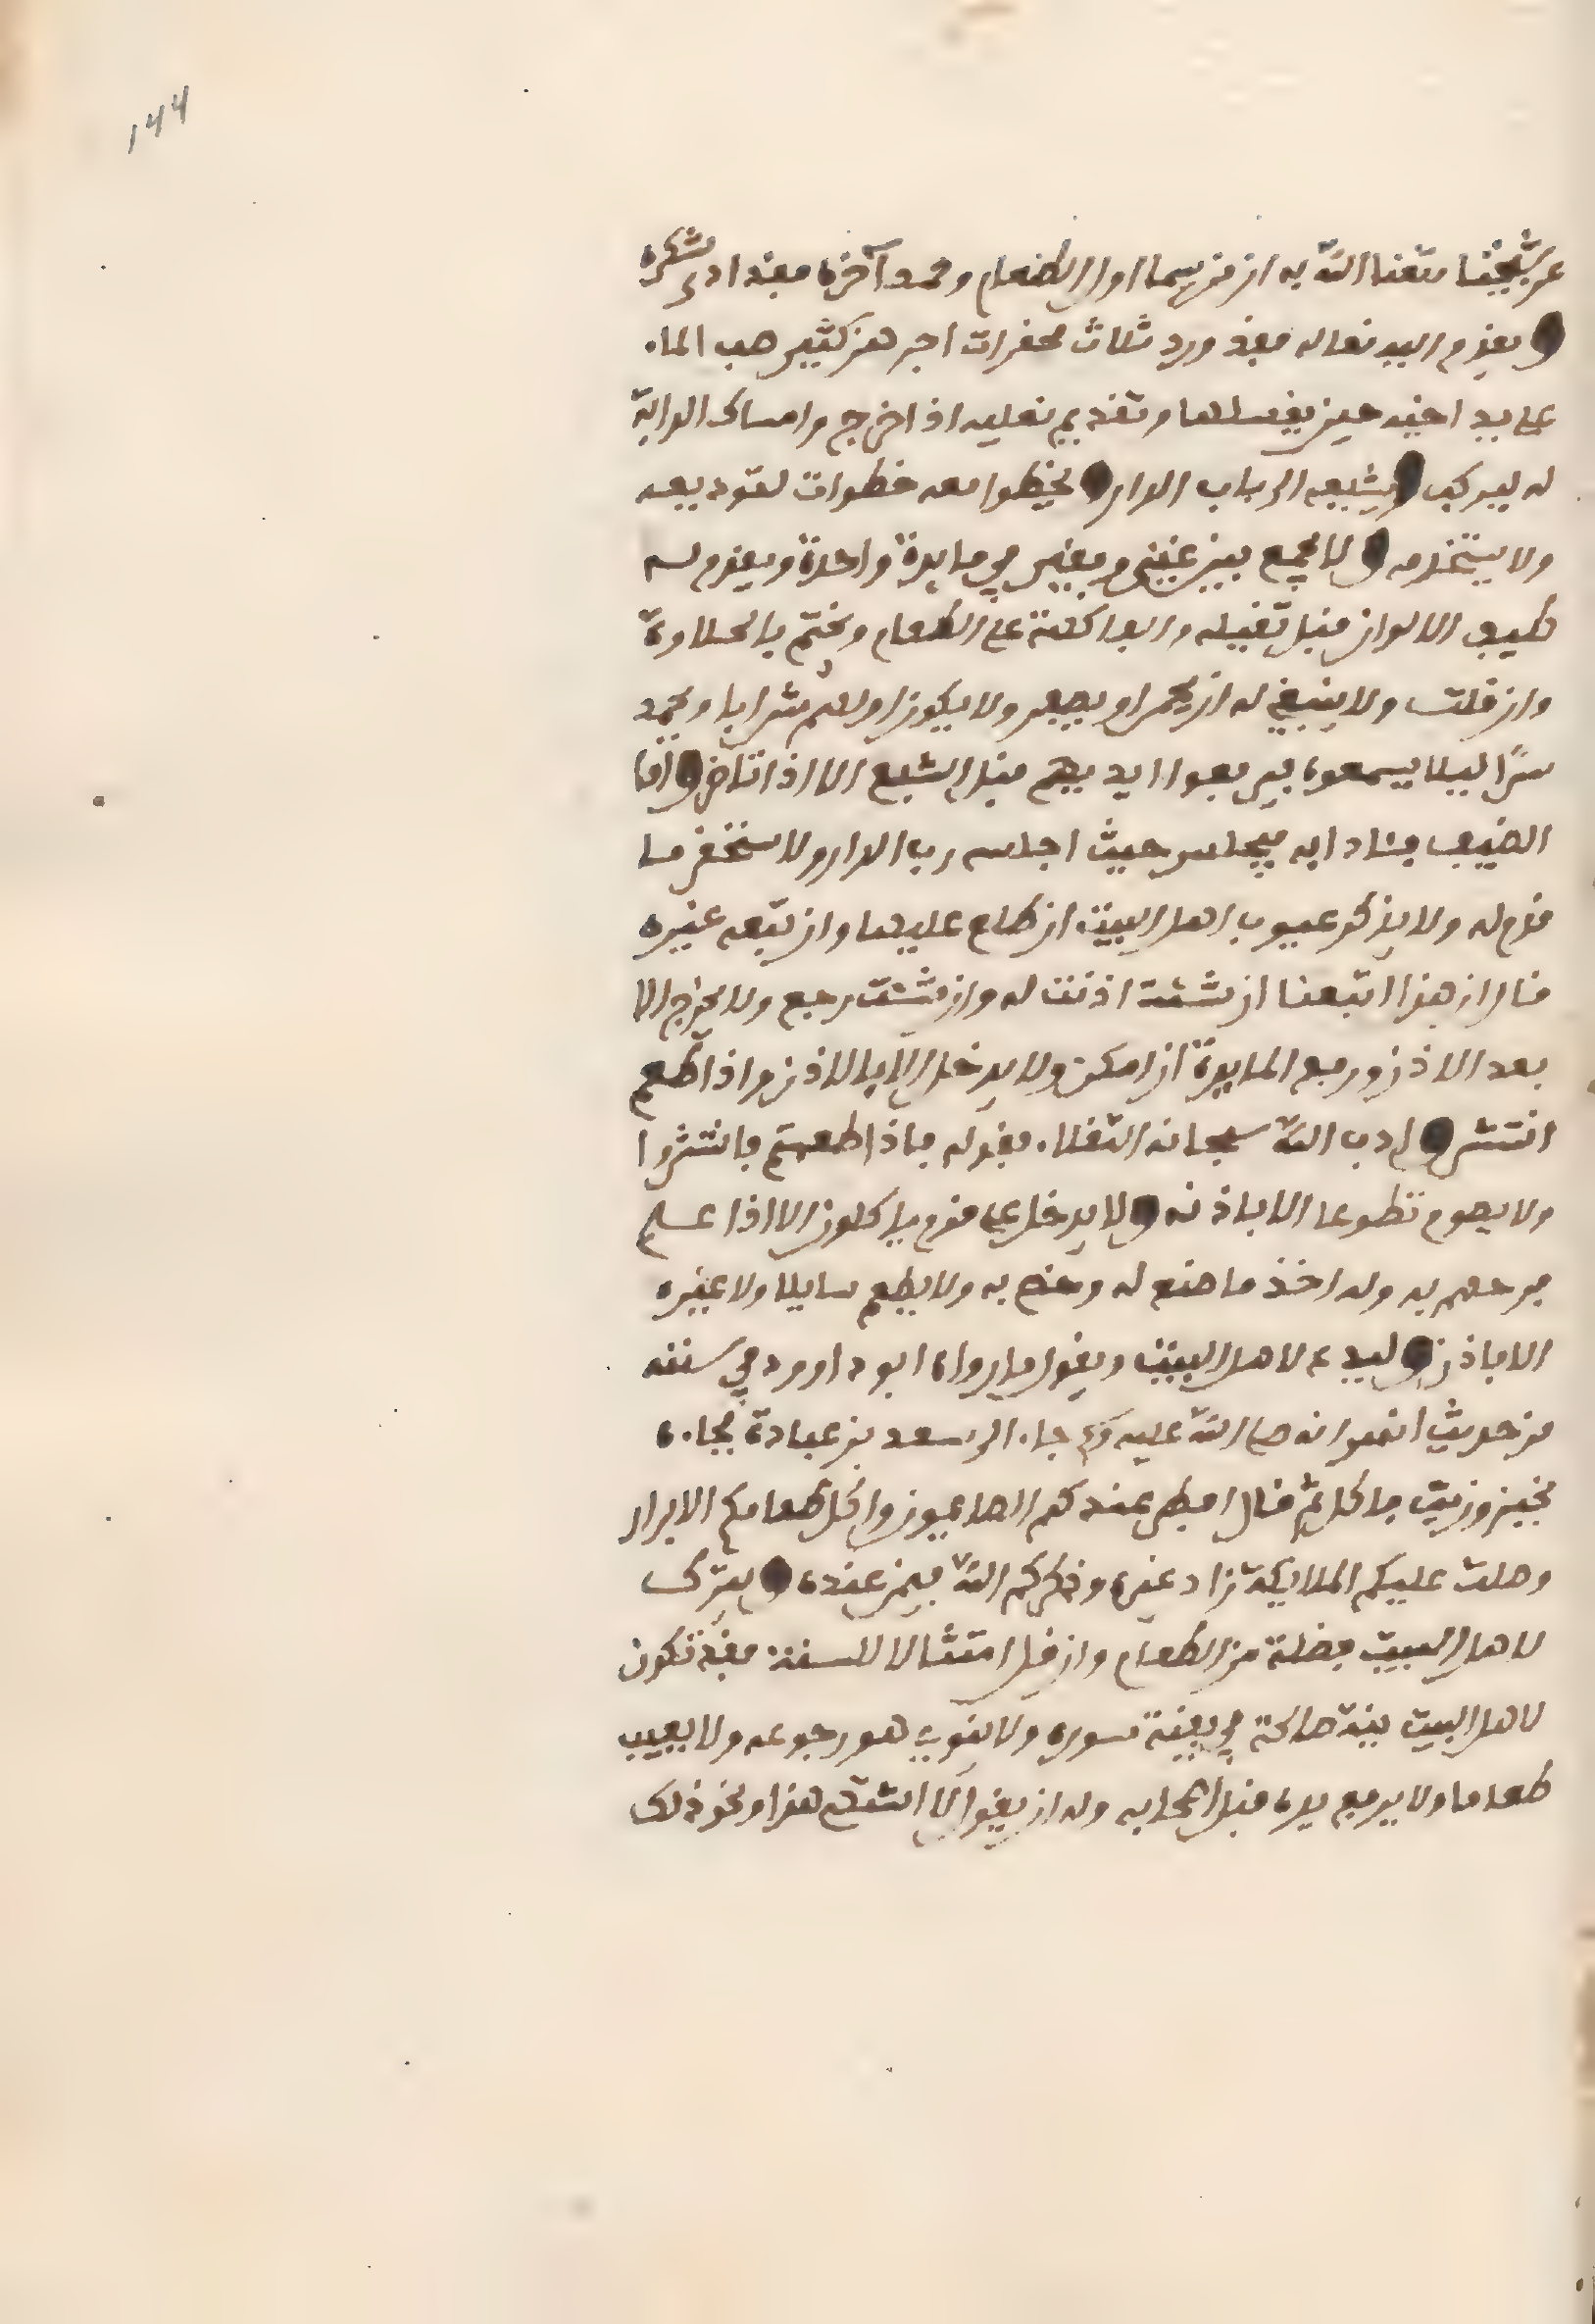 144
عن شيخنا متعنا الله به ان من سما اول الطعام وحمد آخره فقد ادى شكره
ويقدم اليه نعاله فقد ورد ثلاث محقرات اجرهن كثير صب الماء
على يد اخيه حين يغسلها وتقديم نعليه اذا خرج وامساك الدابة
له ليركب ويشيعه الى باب الدار ويخطوا معه خطوات لتوديعه
ولا يستخدمه ولا يجمع بين غني وفقير في مايدة واحدة ويقدم له
طيب الالوان قبل ثقيله والفاكهة على الطعام ويختم بالحلاوة
وان قلت ولا ينبغي له ان يحمر او يصفر ولا يكون اولهم شرابا ويحمد
سرًا ليلا يسمعوه فيرفعوا ايديهم قبل الشبع الا اذا تاخر واما
الضيف فمن ادابه يجلس حيث اجلسه رب الدار ولا يستحقر ما
قدم له ولا يذكر عيوب اهل البيت ان طلع عليها وان تبعه غيره
قال ان هذا اتبعنا ان شئت اذنت له وان شئت رجع ولا يخرج الا
بعد الاذن ورفع المايدة ان امكن ولا يدخل الا بالاذن واذا طعم
انتشر وادب الله سبحانه الثقلاء بقوله فاذا طعمتم فانتشروا
ولا يصوم تطوعا الا باذنه ولا يدخل على قوم ياكلون الا اذا علم
فرحهم به وله اخذ ما صنع له وخص به ولا يطعم سايلا ولا غيره
الا باذن وليدع لاهل البيت ويقول ما رواه ابو داوود في سننه
من حديث انس انه صلى الله عليه وسلم جاء الى سعد بن عبادة فجاءه
بخبز وزيت فاكل ثم قال افطر عندكم الصايمون واكل طعامكم الابرار
وصلت عليكم الملايكة زاد غيره وذكركم الله فيمن عنده ويترك
لاهل البيت فضلة من الطعام وان قل امتثالا للسنة فقد تكون
لاهل البيت نية صالحة في بقية سوره ولا ينوي هو رجوعه ولا يعيب
طعاما ولا يرفع يده قبل اصحابه وله ان يقول لا اشتهي هذا ونحو ذلك